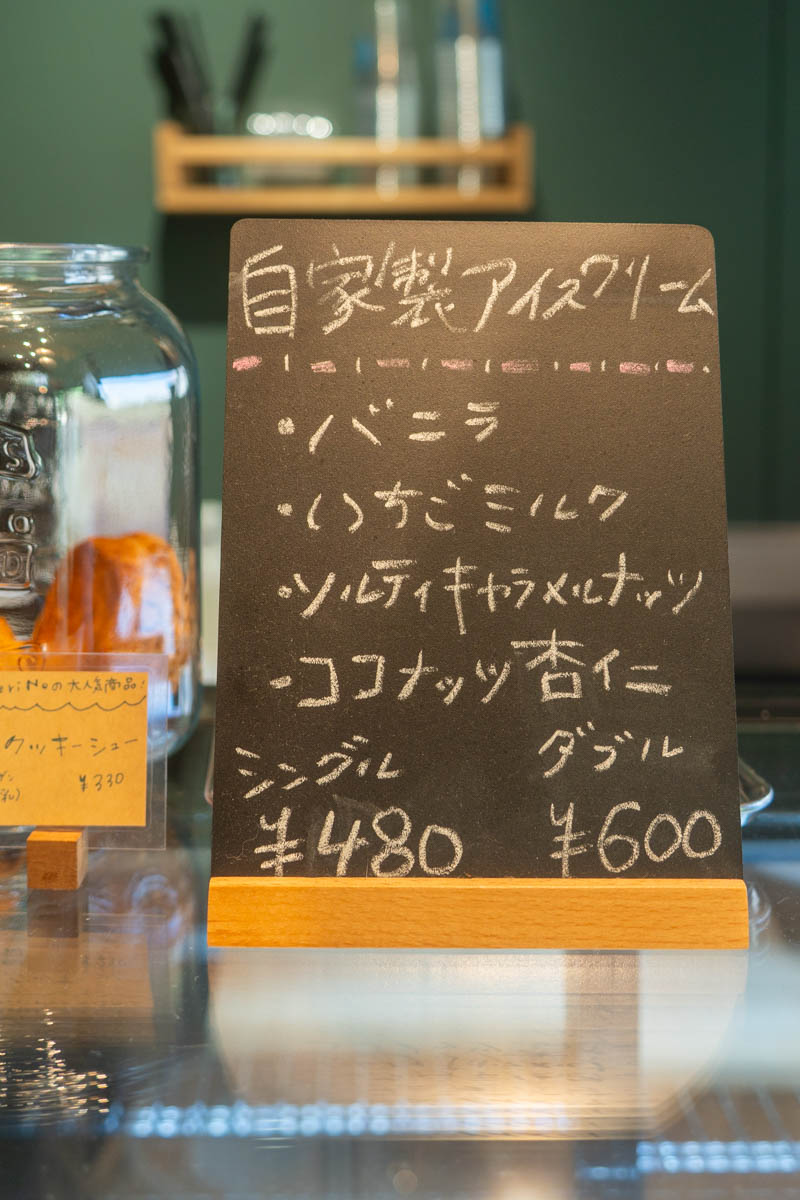 自家製アイスクリーム
・バニラ
・いちごミルク
・ソルティキャラメルナッツ
・ココナッツ杏仁
シングル ダブル
¥480 ¥600
の大人気商品!
クッキーシュー
¥330